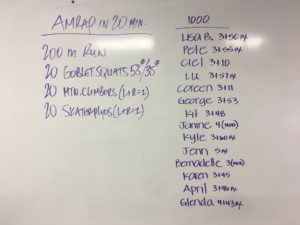 AMRAP IN 20 MIN.
200 m RUN
20 GOBLET SQUATS 53#/35#
20 MTN. CLIMBERS (L+R=1)
20 SKATER HOPS (L+R=1)
1000
LISA B. 3+50
Pete 3+55
Ciel 3+10
LU 3+57
Coreen 3+11
George 3+53
Kit 3+48
Janine 4
Kyle 3+60
Jenn
Bernadette 3
Karen 3+45
April 3+46
Glenda 4+43